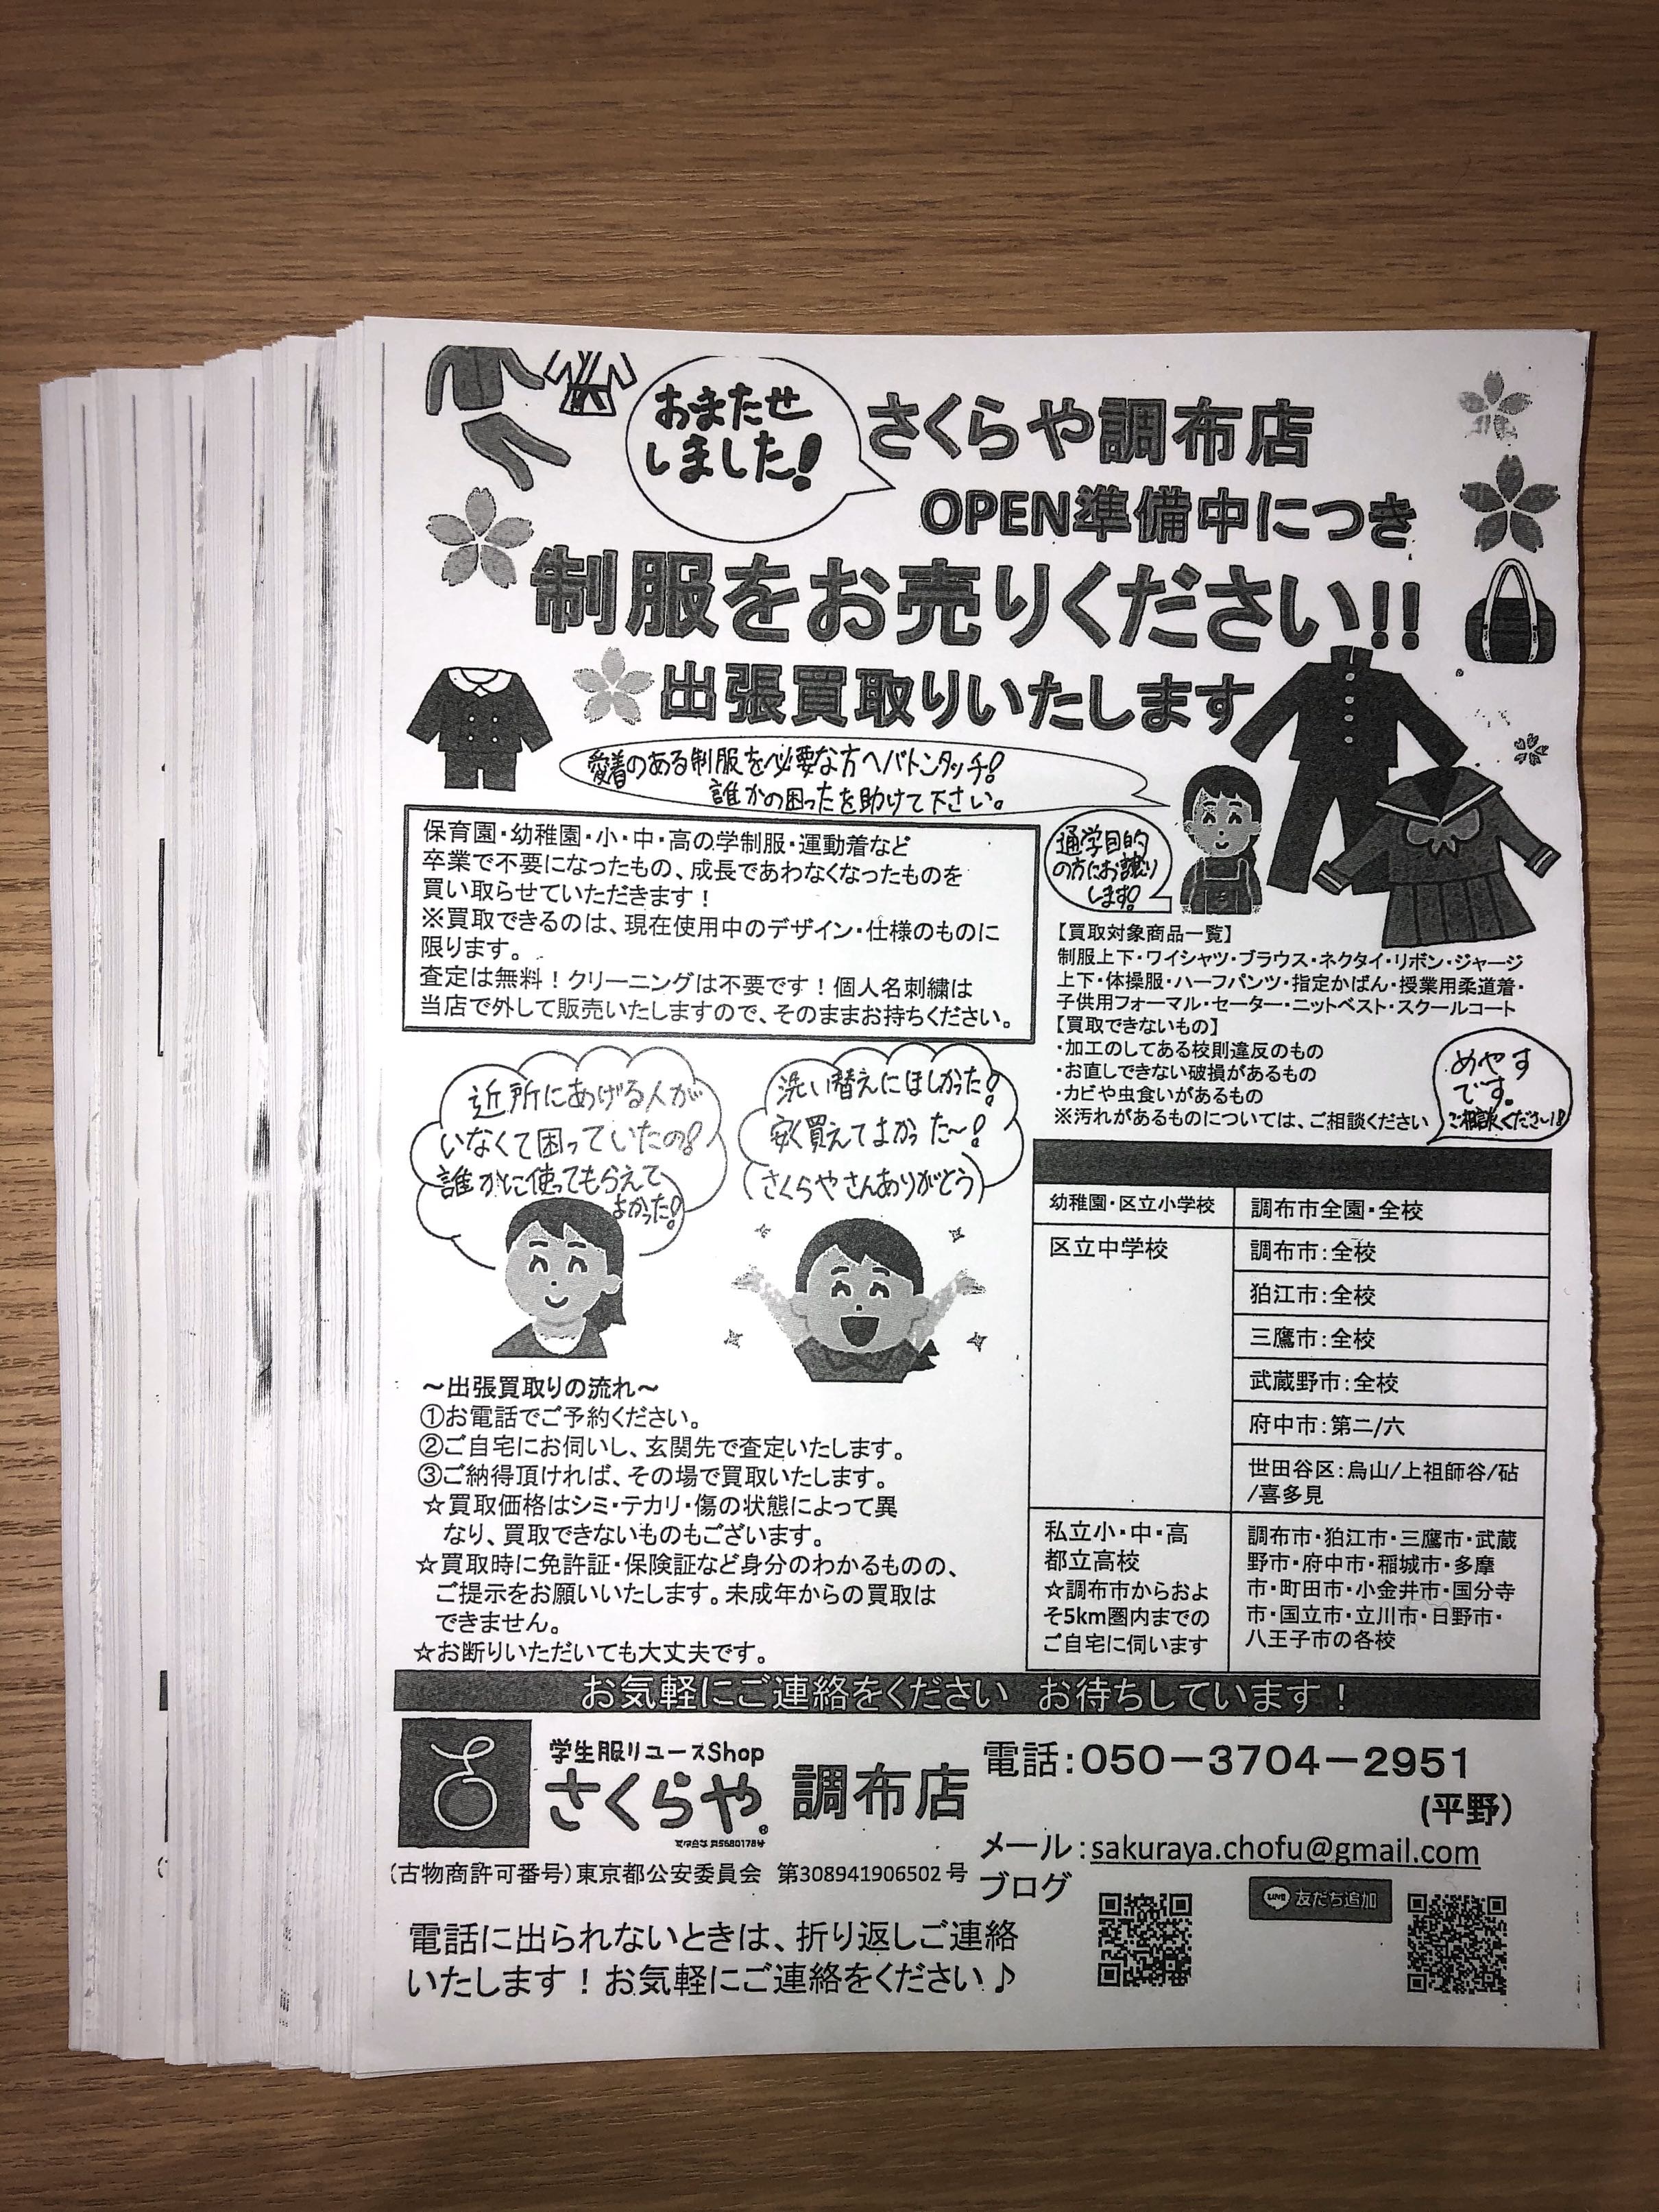 おまたせ
しました!
さくらや調布店
OPEN準備中につき
制服をお売りください!!
出張買取りいたします
愛着のある制服を必要な方へバトンタッチ!
誰かの困ったを助けて下さい。
通学目的
の方にお譲り
します!
保育園・幼稚園・小・中・高の学制服・運動着など
卒業で不要になったもの、成長であわなくなったものを
買い取らせていただきます!
※買取できるのは、現在使用中のデザイン・仕様のものに
限ります。
査定は無料!クリーニングは不要です!個人名刺繍は
当店で外して販売いたしますので、そのままお持ちください。
【買取対象商品一覧】
制服上下・ワイシャツ・ブラウス・ネクタイ・リボン・ジャージ
上下・体操服・ハーフパンツ・指定かばん・授業用柔道着・
子供用フォーマル・セーター・ニットベスト・スクールコート
【買取できないもの】
・加工のしてある校則違反のもの
・お直しできない破損があるもの
・カビや虫食いがあるもの
※汚れがあるものについては、ご相談ください
めやす
です。
ご相談くださ〜い!!
近所にあげる人が
いなくて困っていたの!
誰かに使ってもらえて
よかった!
洗い替えにほしかった!
安く買えてよかった〜!
(さくらやさんありがとう)
幼稚園・区立小学校 調布市全園・全校
区立中学校 調布市:全校
狛江市:全校
三鷹市:全校
武蔵野市:全校
府中市:第二/六
世田谷区:烏山/上祖師谷/砧
/喜多見
私立小・中・高
都立高校
☆調布市からおよ
そ5km圏内までの
ご自宅に伺います
調布市・狛江市・三鷹市・武蔵
野市・府中市・稲城市・多摩
市・町田市・小金井市・国分寺
市・国立市・立川市・日野市・
八王子市の各校
〜出張買取りの流れ〜
①お電話でご予約ください。
②ご自宅にお伺いし、玄関先で査定いたします。
③ご納得頂ければ、その場で買取いたします。
☆買取価格はシミ・テカリ・傷の状態によって異
なり、買取できないものもございます。
☆買取時に免許証・保険証など身分のわかるものの、
ご提示をお願いいたします。未成年からの買取は
できません。
☆お断りいただいても大丈夫です。
お気軽にご連絡をください お待ちしています!
学生服リユースShop
さくらや® 調布店
電話:050－3704－2951
(平野)
メール:sakuraya.chofu@gmail.com
(古物商許可番号)東京都公安委員会 第308941906502号
ブログ
LINE 友だち追加
電話に出られないときは、折り返しご連絡
いたします!お気軽にご連絡をください♪